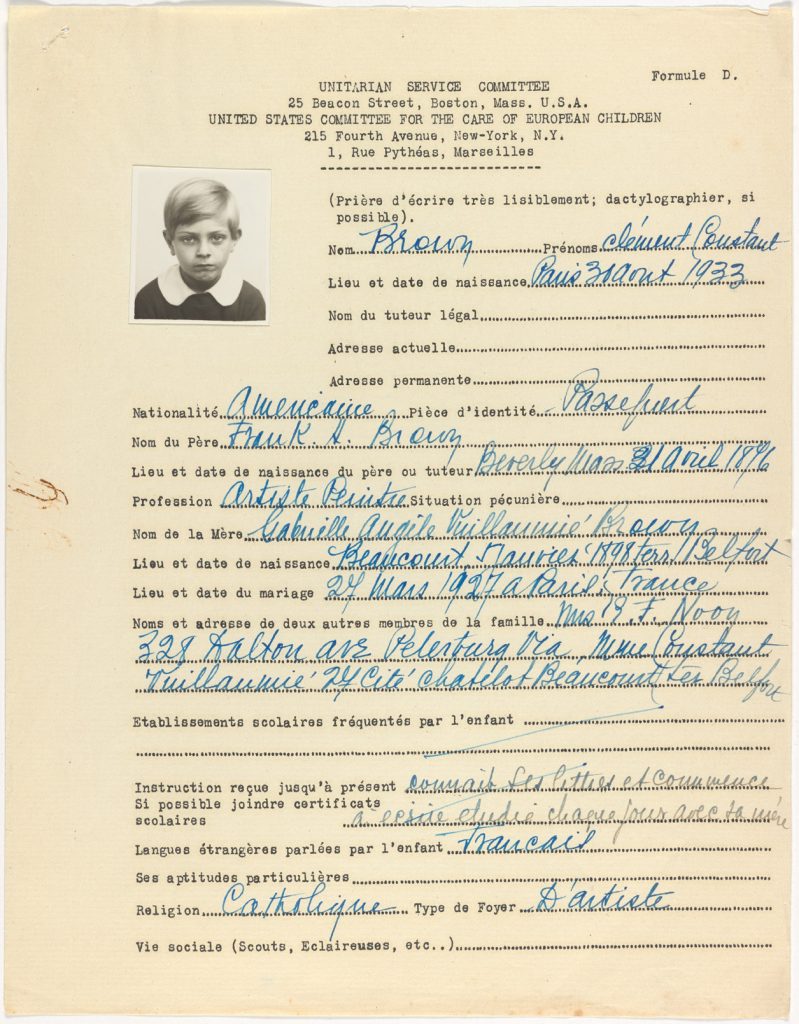 Formule D.
UNITARIAN SERVICE COMMITTEE
25 Beacon Street, Boston, Mass. U.S.A.
UNITED STATES COMMITTEE FOR THE CARE OF EUROPEAN CHILDREN
215 Fourth Avenue, New-York, N.Y.
1, Rue Pythéas, Marseilles
(Prière d'écrire très lisiblement; dactylographier, si
possible).
Nom Brown Prénoms clément Constant
Lieu et date de naissance Paris 30 Aout 1933
Nom du tuteur légal
Adresse actuelle
Adresse permanente
Nationalité Americaine Pièce d'identité Passeport
Nom du Père Frank. A. Brown
Lieu et date de naissance du père ou tuteur Beverly Mass Avril 1876
Profession Artiste Peintre Situation pécunière
Nom de la Mère Gabrielle Angèle Vuillaumié Brown
Lieu et date de naissance Beaucourt, 5 Janvier 1898 Terr/Belfort
Lieu et date du mariage 27 Mars 1927 a Paris, France
Noms et adresse de deux autres membres de la famille Mrs F. Noon
328 Dalton ave Petersburg Via, Mme Constant
Vuillaumié 24 Cité chatelot Beaucourt Ter Belfort
Etablissements scolaires fréquentés par l'enfant
Instruction reçue jusqu'à présent connait ses lettres et commence
Si possible joindre certificats
scolaires à ecrire etudie chaque jour avec sa mère
Langues étrangères parlées par l'enfant Francais
Ses aptitudes particulières
Religion Catholique Type de Foyer D'artiste
Vie sociale (Scouts, Eclaireuses, etc..)